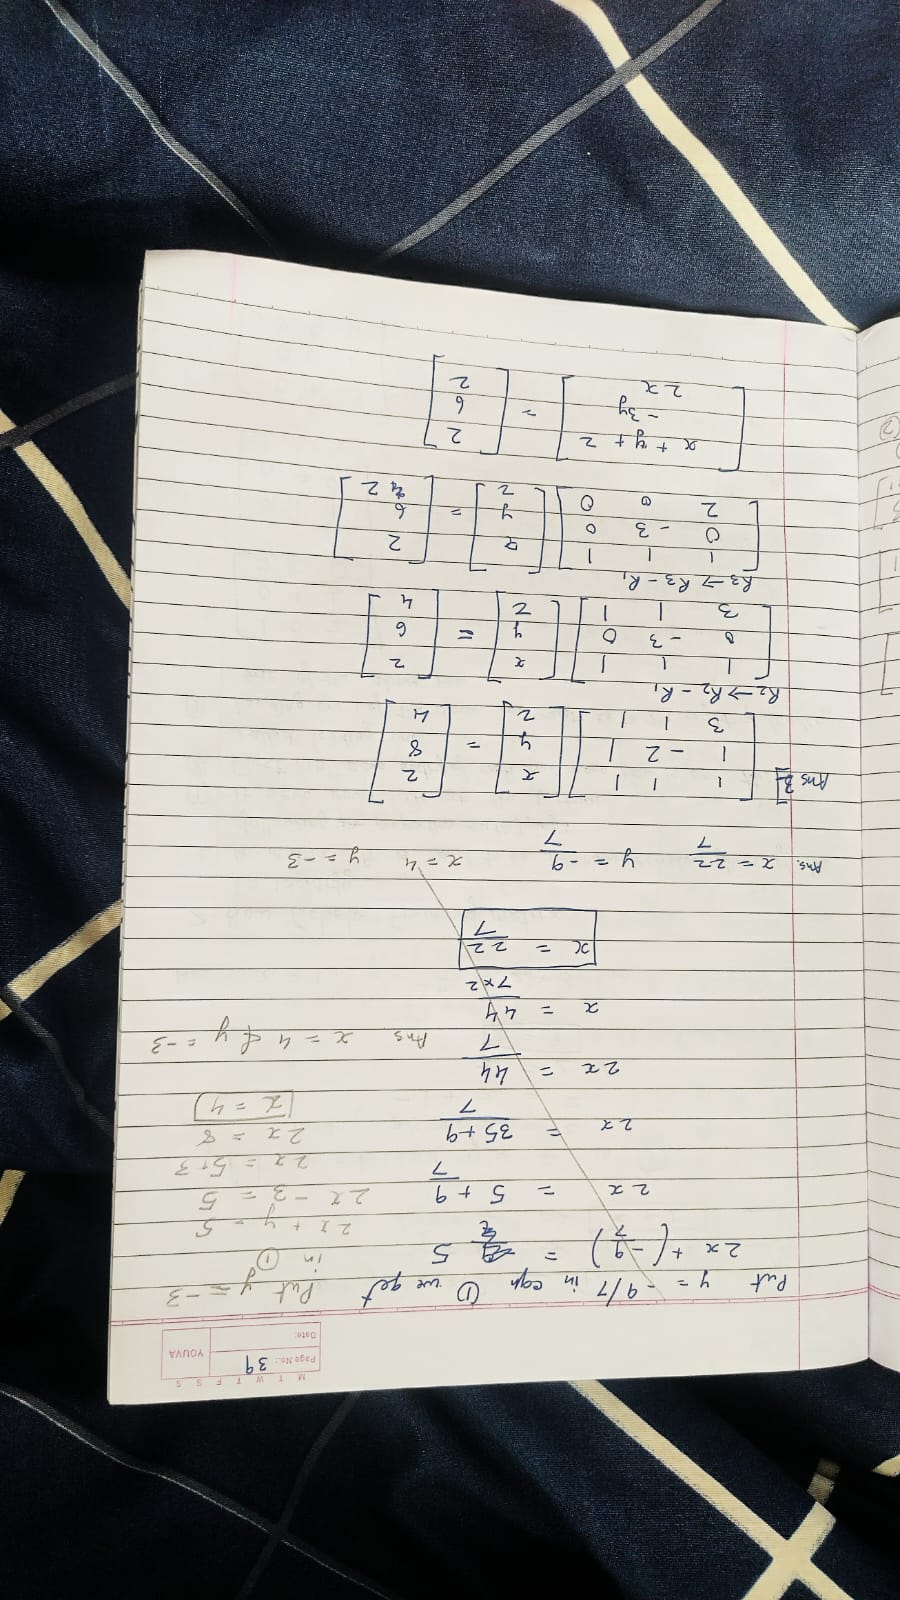 M T W T F S S
Page No.: 39
YOUVA
Date:
Put y = -9/7 in eqn ① we get
2x + (-9/7) = 5
2x = 5 + 9/7
2x = 35+9/7
2x = 44/7
x = 44/7×2
x = 22/7
Put y = -3
in ①
2x + y = 5
2x - 3 = 5
2x = 5+3
2x = 8
x = 4
Ans x = 4 & y = -3
Ans. x = 22/7 y = -9/7 x = 4 y = -3
Ans 3] [1 1 1] [x] = [2]
[1 -2 1] [y] [8]
[3 1 1] [z] [4]
R2 → R2 - R1
[1 1 1] [x] = [2]
[0 -3 0] [y] [6]
[3 1 1] [z] [4]
R3 → R3 - R1
[1 1 1] [x] = [2]
[0 -3 0] [y] [6]
[2 0 0] [z] [2]
[x + y + z] = [2]
[-3y] [6]
[2x] [2]